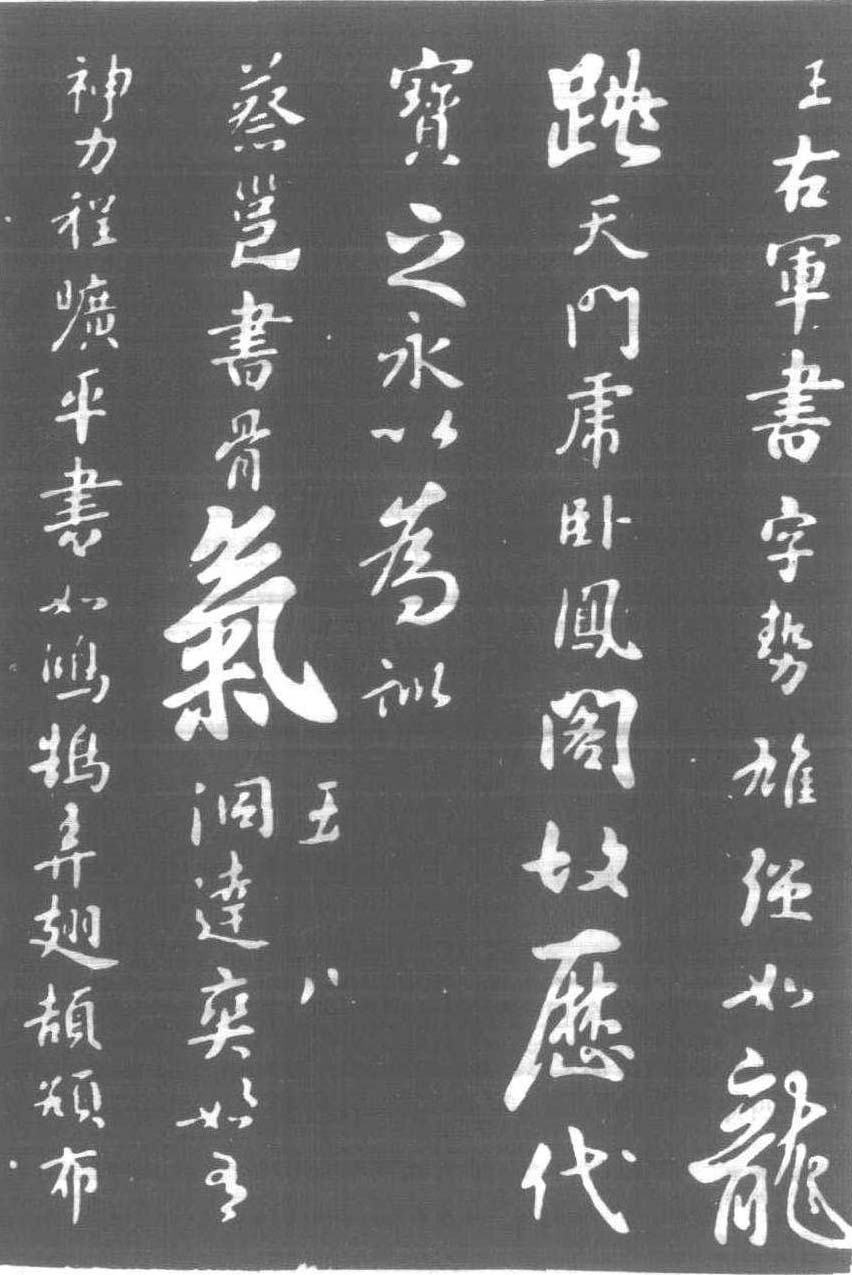 王右軍書字勢雄強如龍
跳天門虎卧鳳閣故歷代
寶之永以為訓
五八
蔡邕書骨氣洞達爽如有
神力程曠平書如鴻鵠弄翅頡頏布